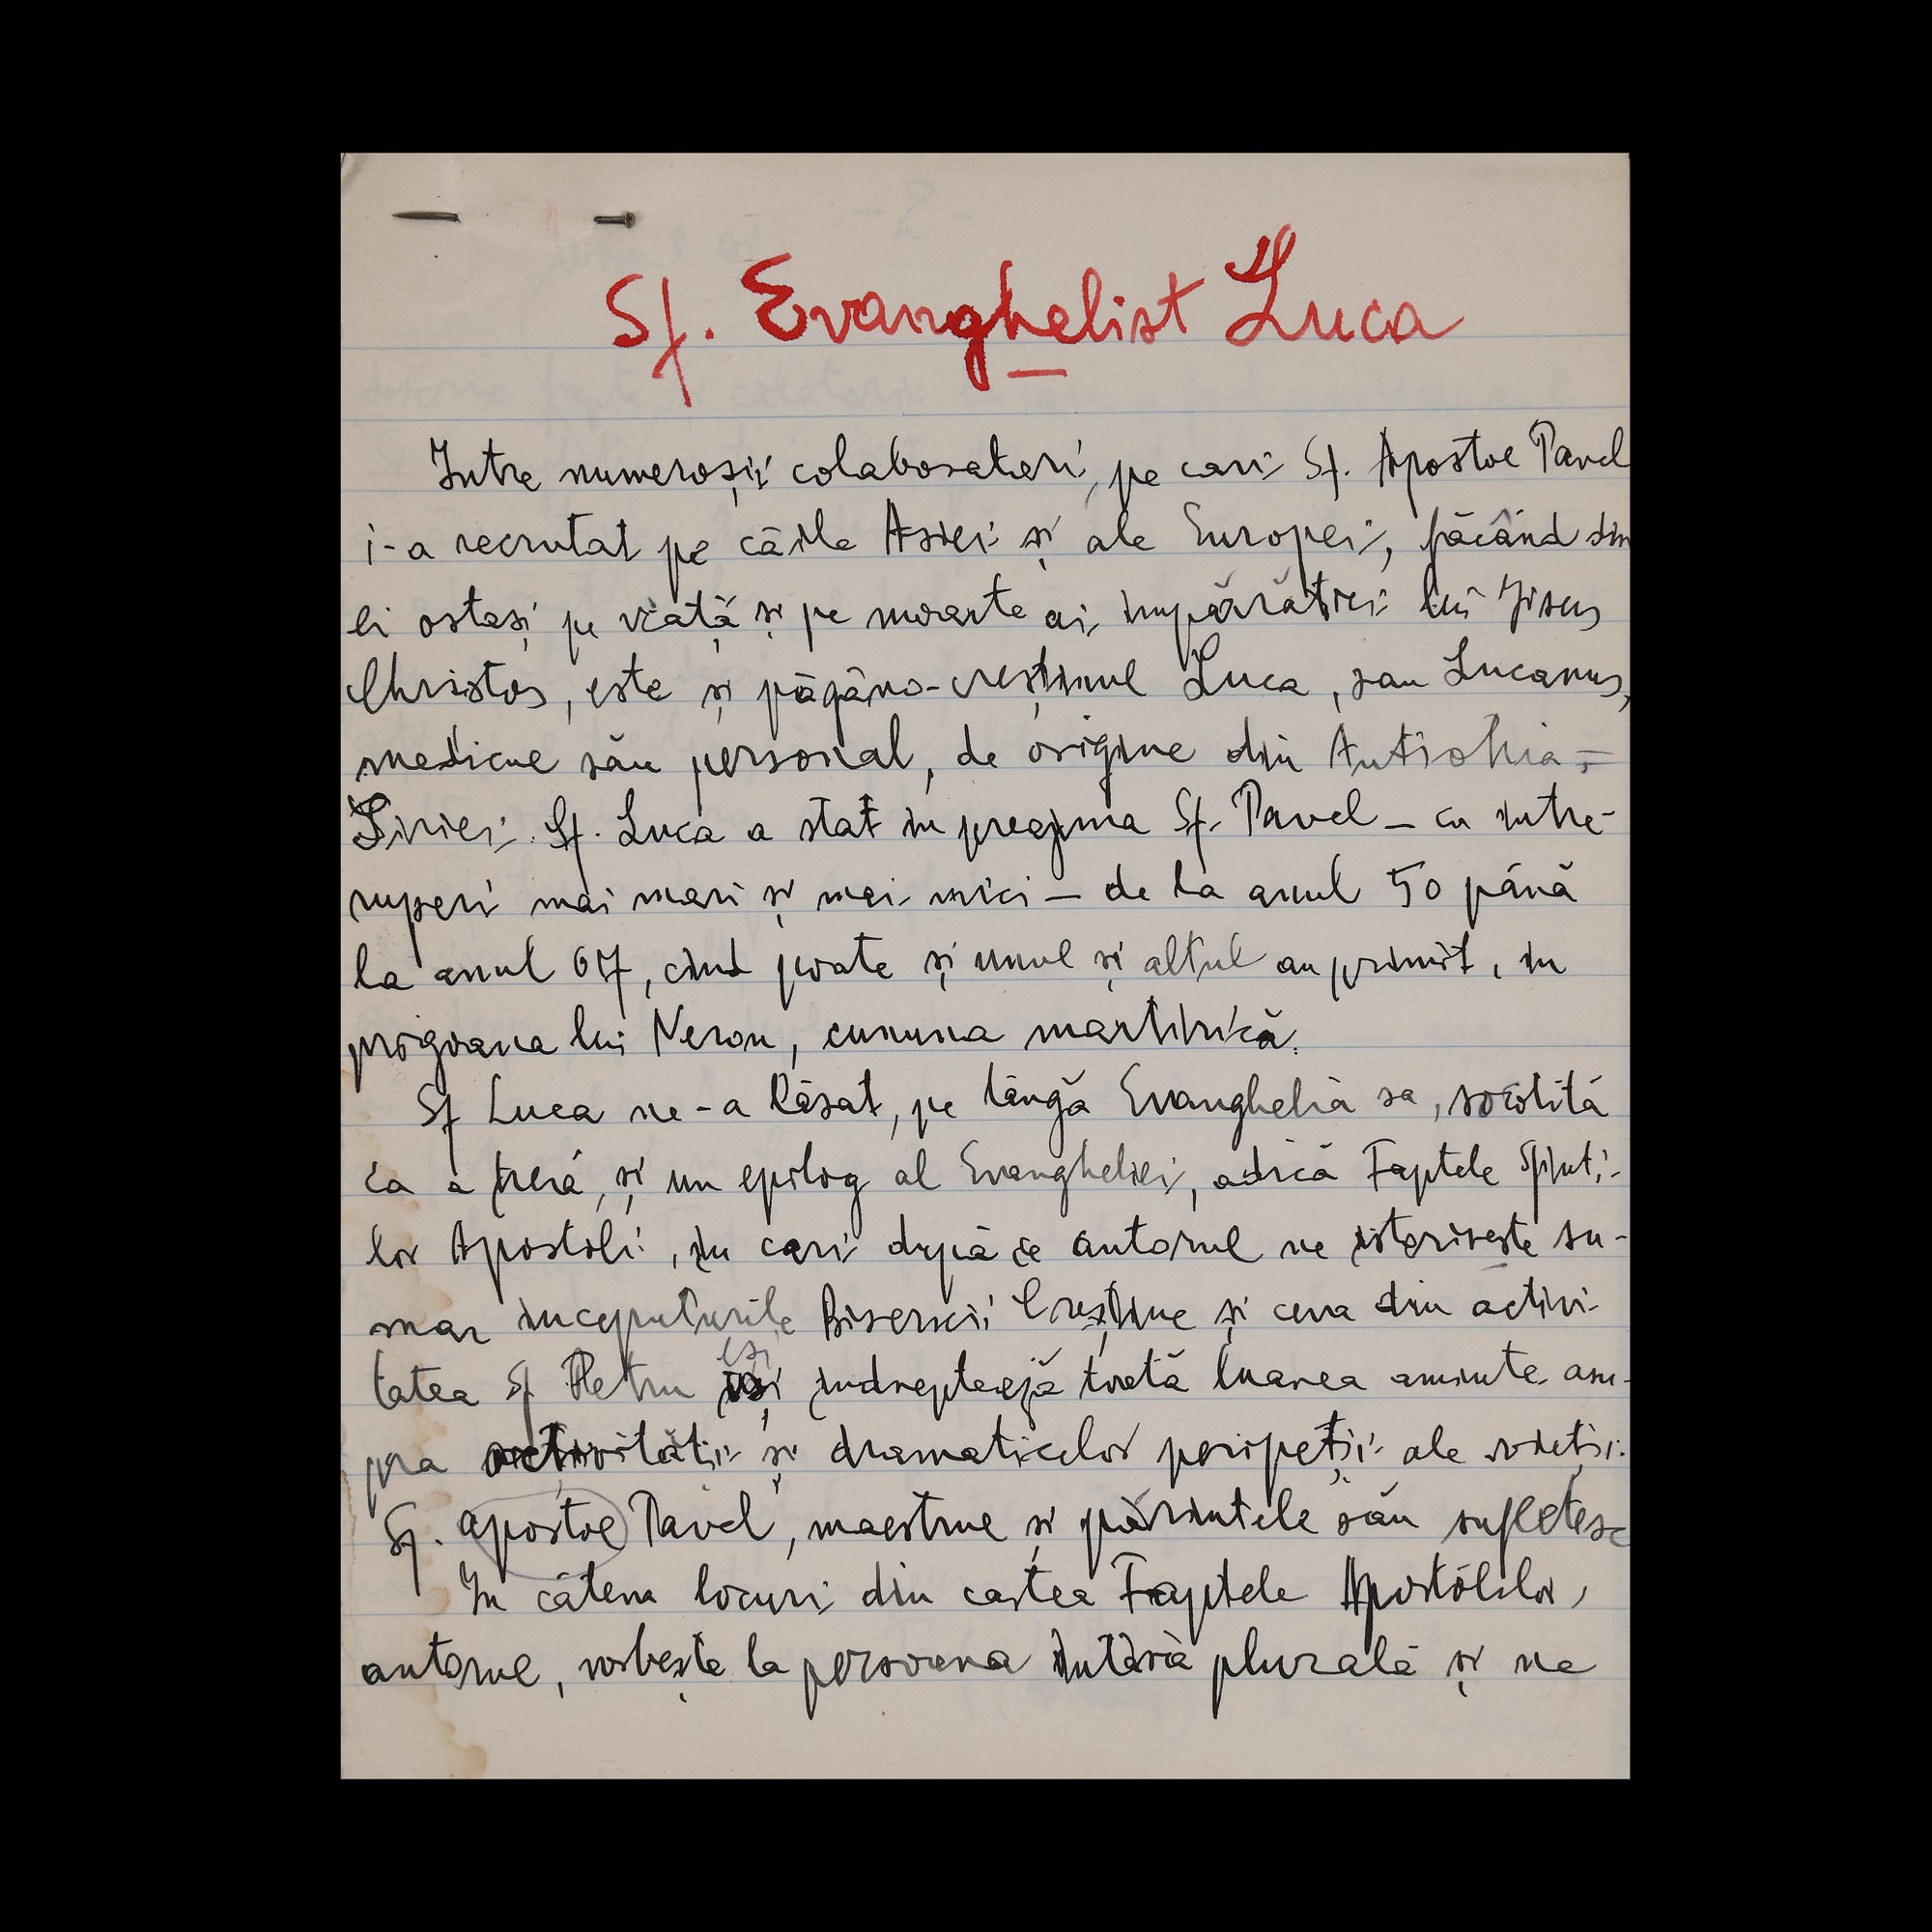 Sf. Evanghelist Luca
Intre numeroșii colaboratori, pe cari Sf. Apostol Pavel
i-a recrutat pe căile Asiei și ale Europei, făcând din
ei ostași pe viață și pe moarte ai impărăției lui Iisus
Christos, este și păgâno-creștinul Luca, sau Lucanus,
medicul său personal, de origine din Antiohia-
Siriei. Sf. Luca a stat in preajma Sf. Pavel - cu intre-
ruperi mai mari și mai mici - de la anul 50 până
la anul 67, cind poate și unul și altul au primit, in
prigoana lui Neron, cununa martirică.
Sf Luca ne-a lăsat, pe lângă Evanghelia sa, socotită
ca a treia, și un epilog al Evangheliei, adică Faptele Sfinți-
lor Apostoli, in cari după ce autorul ne istorisește su-
mar inceputurile Bisericii Creștine și ceva din activi-
tatea Sf Petru iși indreptează toată luarea aminte asu-
pra activității și dramaticelor peripeții ale vieții
Sf. apostol Pavel, maestrul și părintele său sufletesc
In câteva locuri din cartea Faptele Apostolilor,
autorul, vorbește la persoana intâia plurală și ne